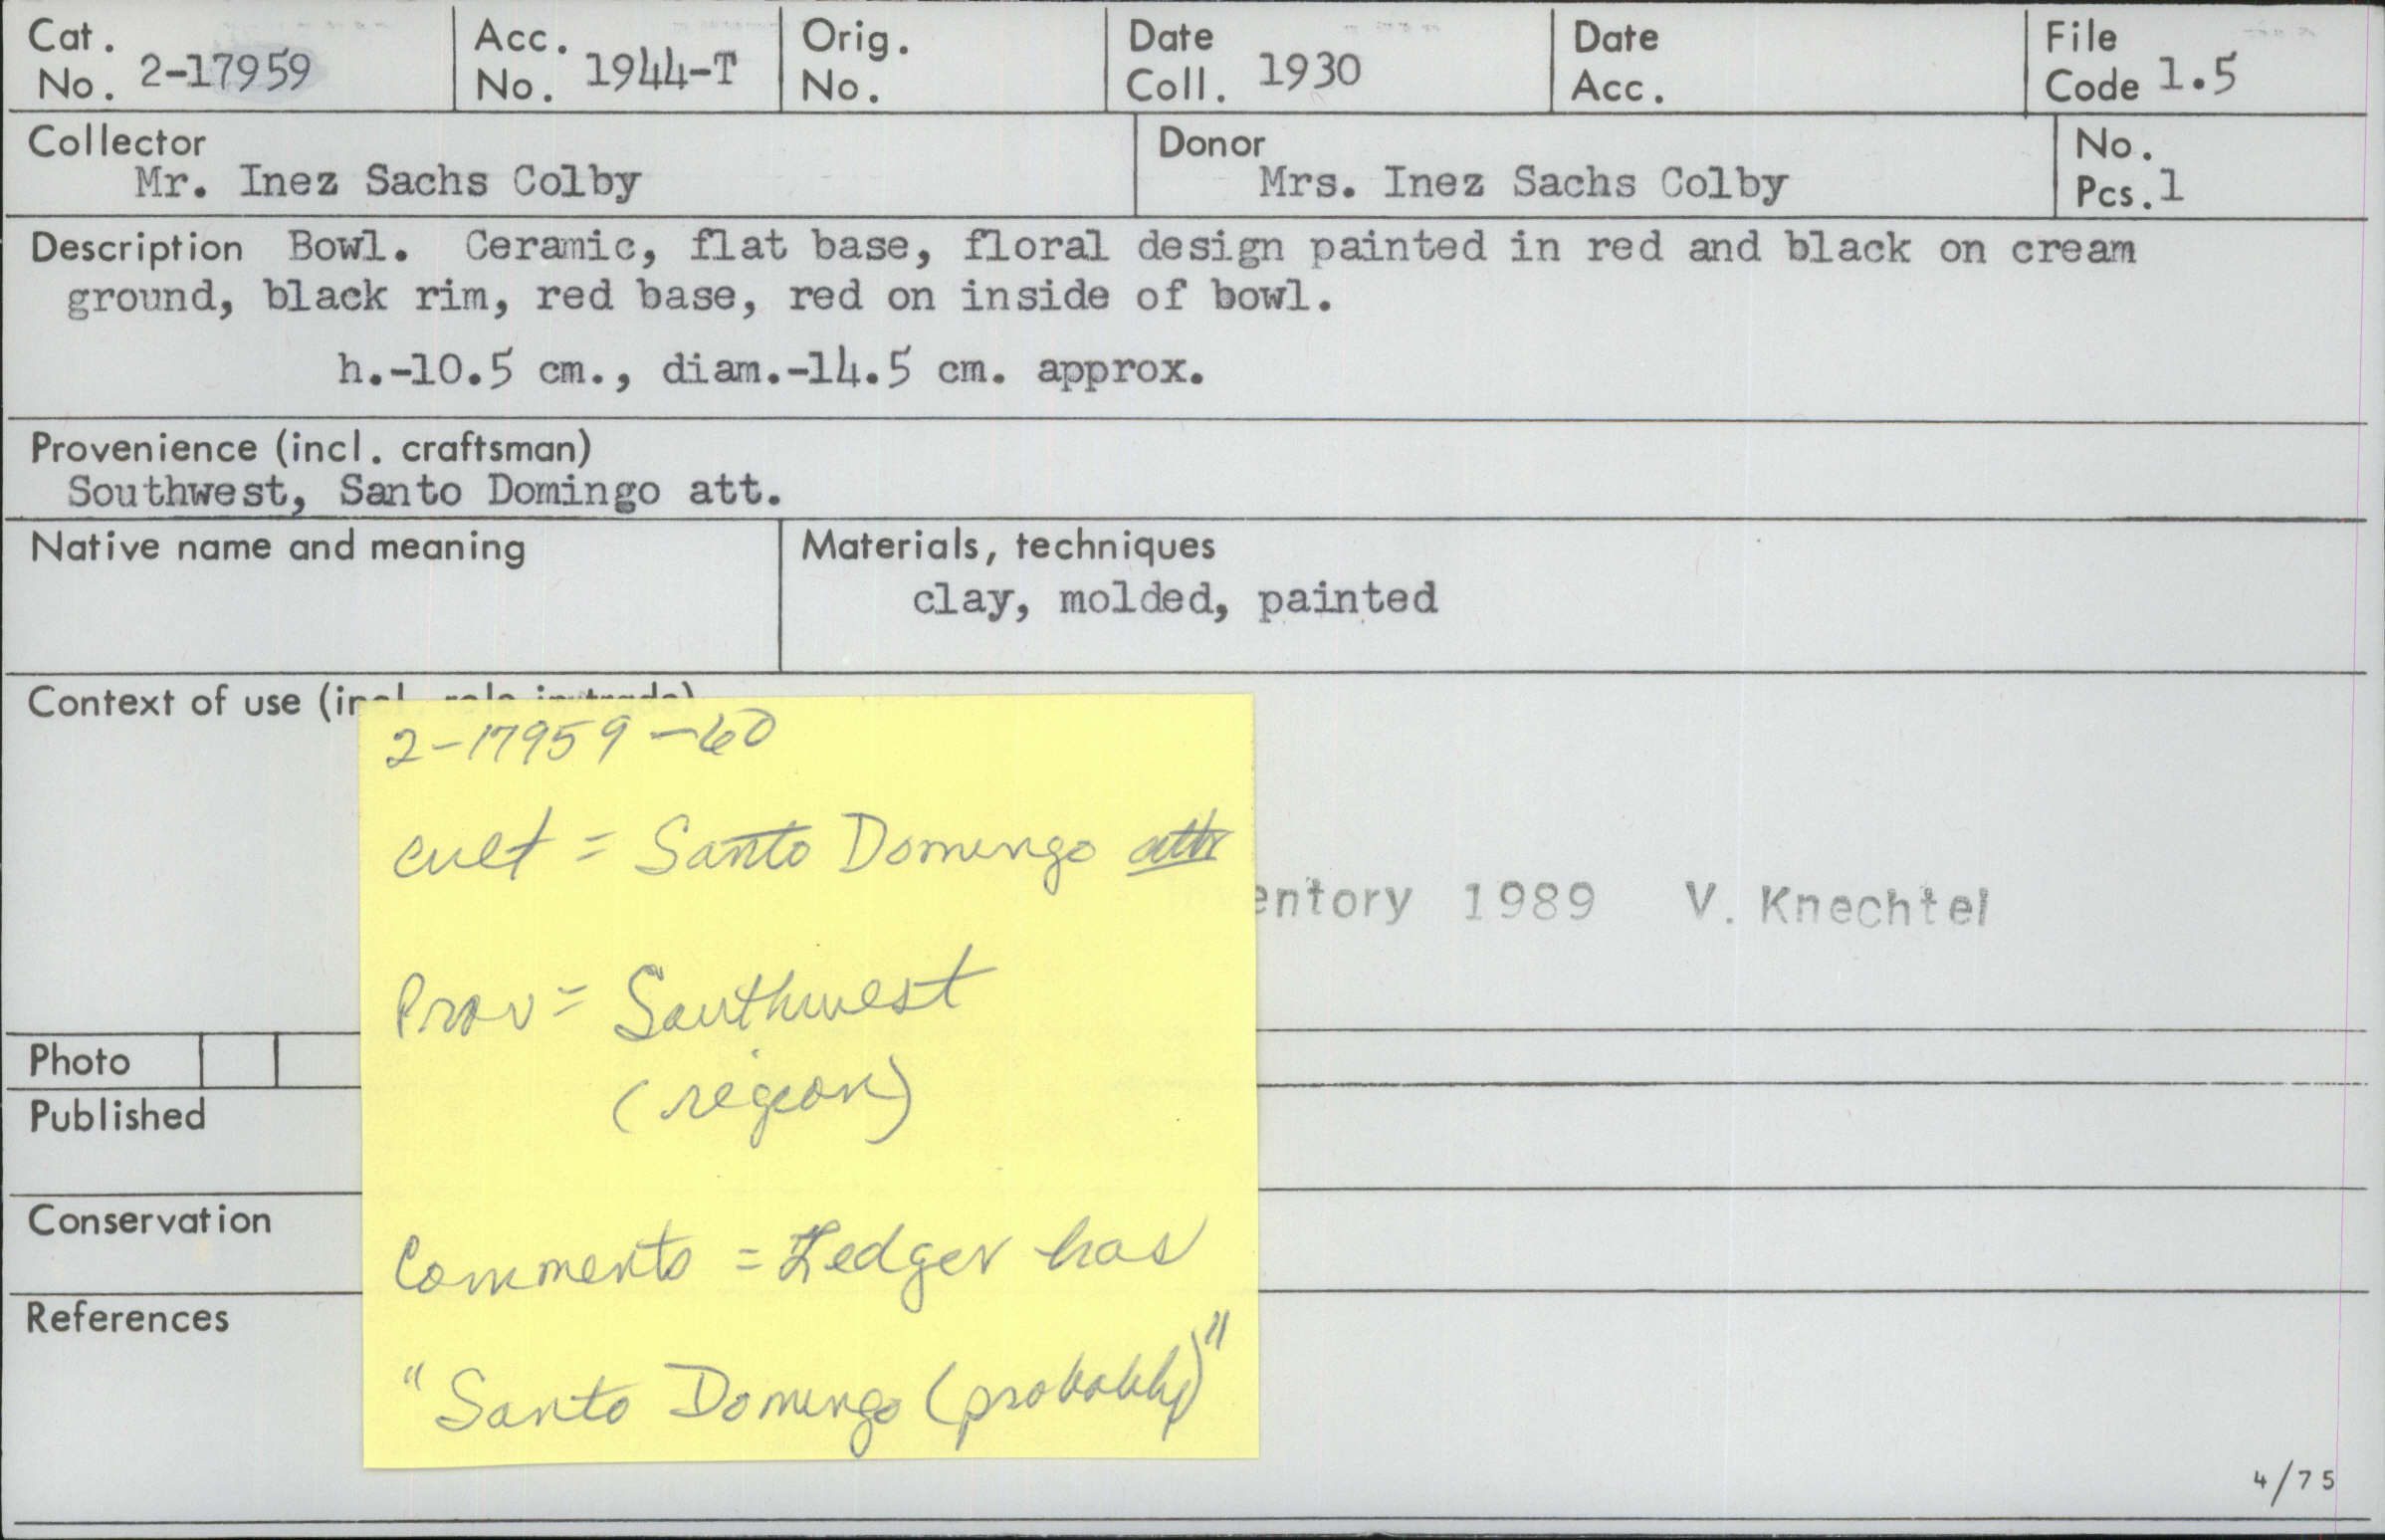 Cat. No. 2-17959 Acc. No. 1944-T Orig. No. Date Coll. 1930 Date Acc. File Code 1.5
Collector Donor No. Pcs. 1
Mr. Inez Sachs Colby Mrs. Inez Sachs Colby
Description Bowl. Ceramic, flat base, floral design painted in red and black on cream
ground, black rim, red base, red on inside of bowl.
h.-10.5 cm., diam.-14.5 cm. approx.
Provenience (incl. craftsman)
Southwest, Santo Domingo att.
Native name and meaning Materials, techniques
clay, molded, painted
Context of use
2-17959-60
cult = Santo Domingo attr
Prov = Southwest
(region)
Comments = Ledger has
"Santo Domingo (probably)"
entory 1989 V. Knechtel
Photo
Published
Conservation
References
4/75